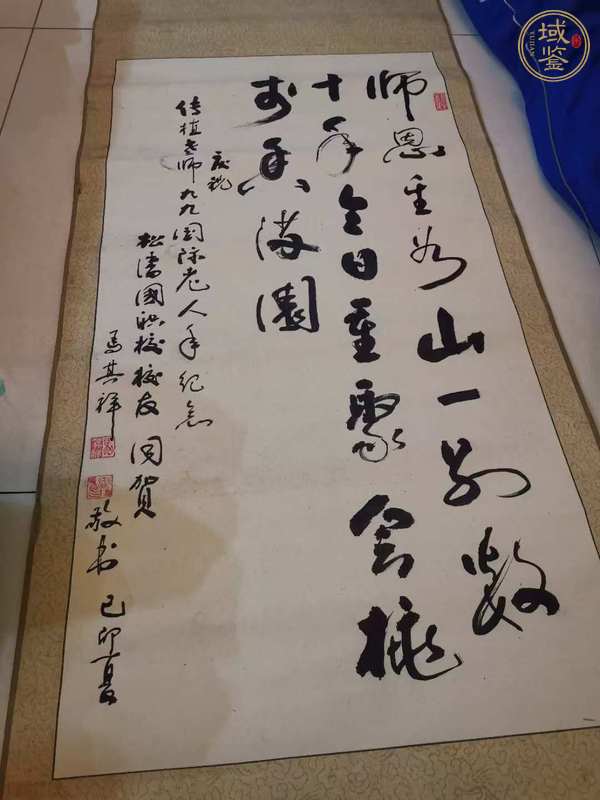 师恩重如山一别数
十年今日重聚会桃
李香满園
庆祝
传植老师九九国际老人年纪念
松潘國职校校友同贺
马其祥 敬书 己卯夏
域鉴
YUJIAN